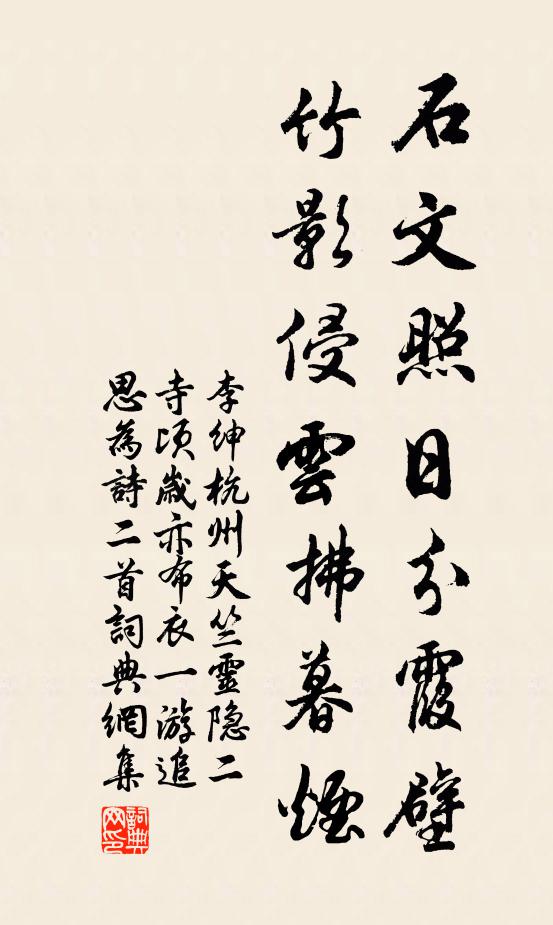 石文照日分霞壁
竹影侵雲拂暮煙
李紳杭州天竺靈隐二
寺頃歲亦布衣一游追
思為詩二首詞典網集
詞典
网印